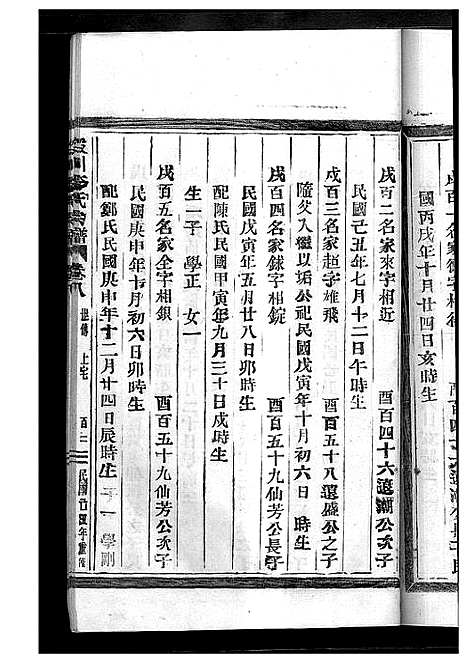 國丙戌年十月廿四日亥時生
戌百二名家來字相近　酉百四十六遠潮公次子
民國己丑年七月十二日午時生
戌百三名家超字雄飛　酉百五十八遠盛公之子
隨父入繼以垢公祀民國戊寅年十月初六日　時生
戌百四名家錸字相錠　酉百五十九仙芳公長子
民國戊寅年五月廿八日卯時生
配陳氏民國甲寅年九月三十日戌時生
生一子　學正　女一
戌百五名家全字相銀　酉百五十九仙芳公次子
民國庚申年十月初六日卯時生
配鄭氏民國庚申年十二月廿四日辰時生子一　學剛
氏宗譜　卷八　世傳　上宅　百二　民國廿　年重修